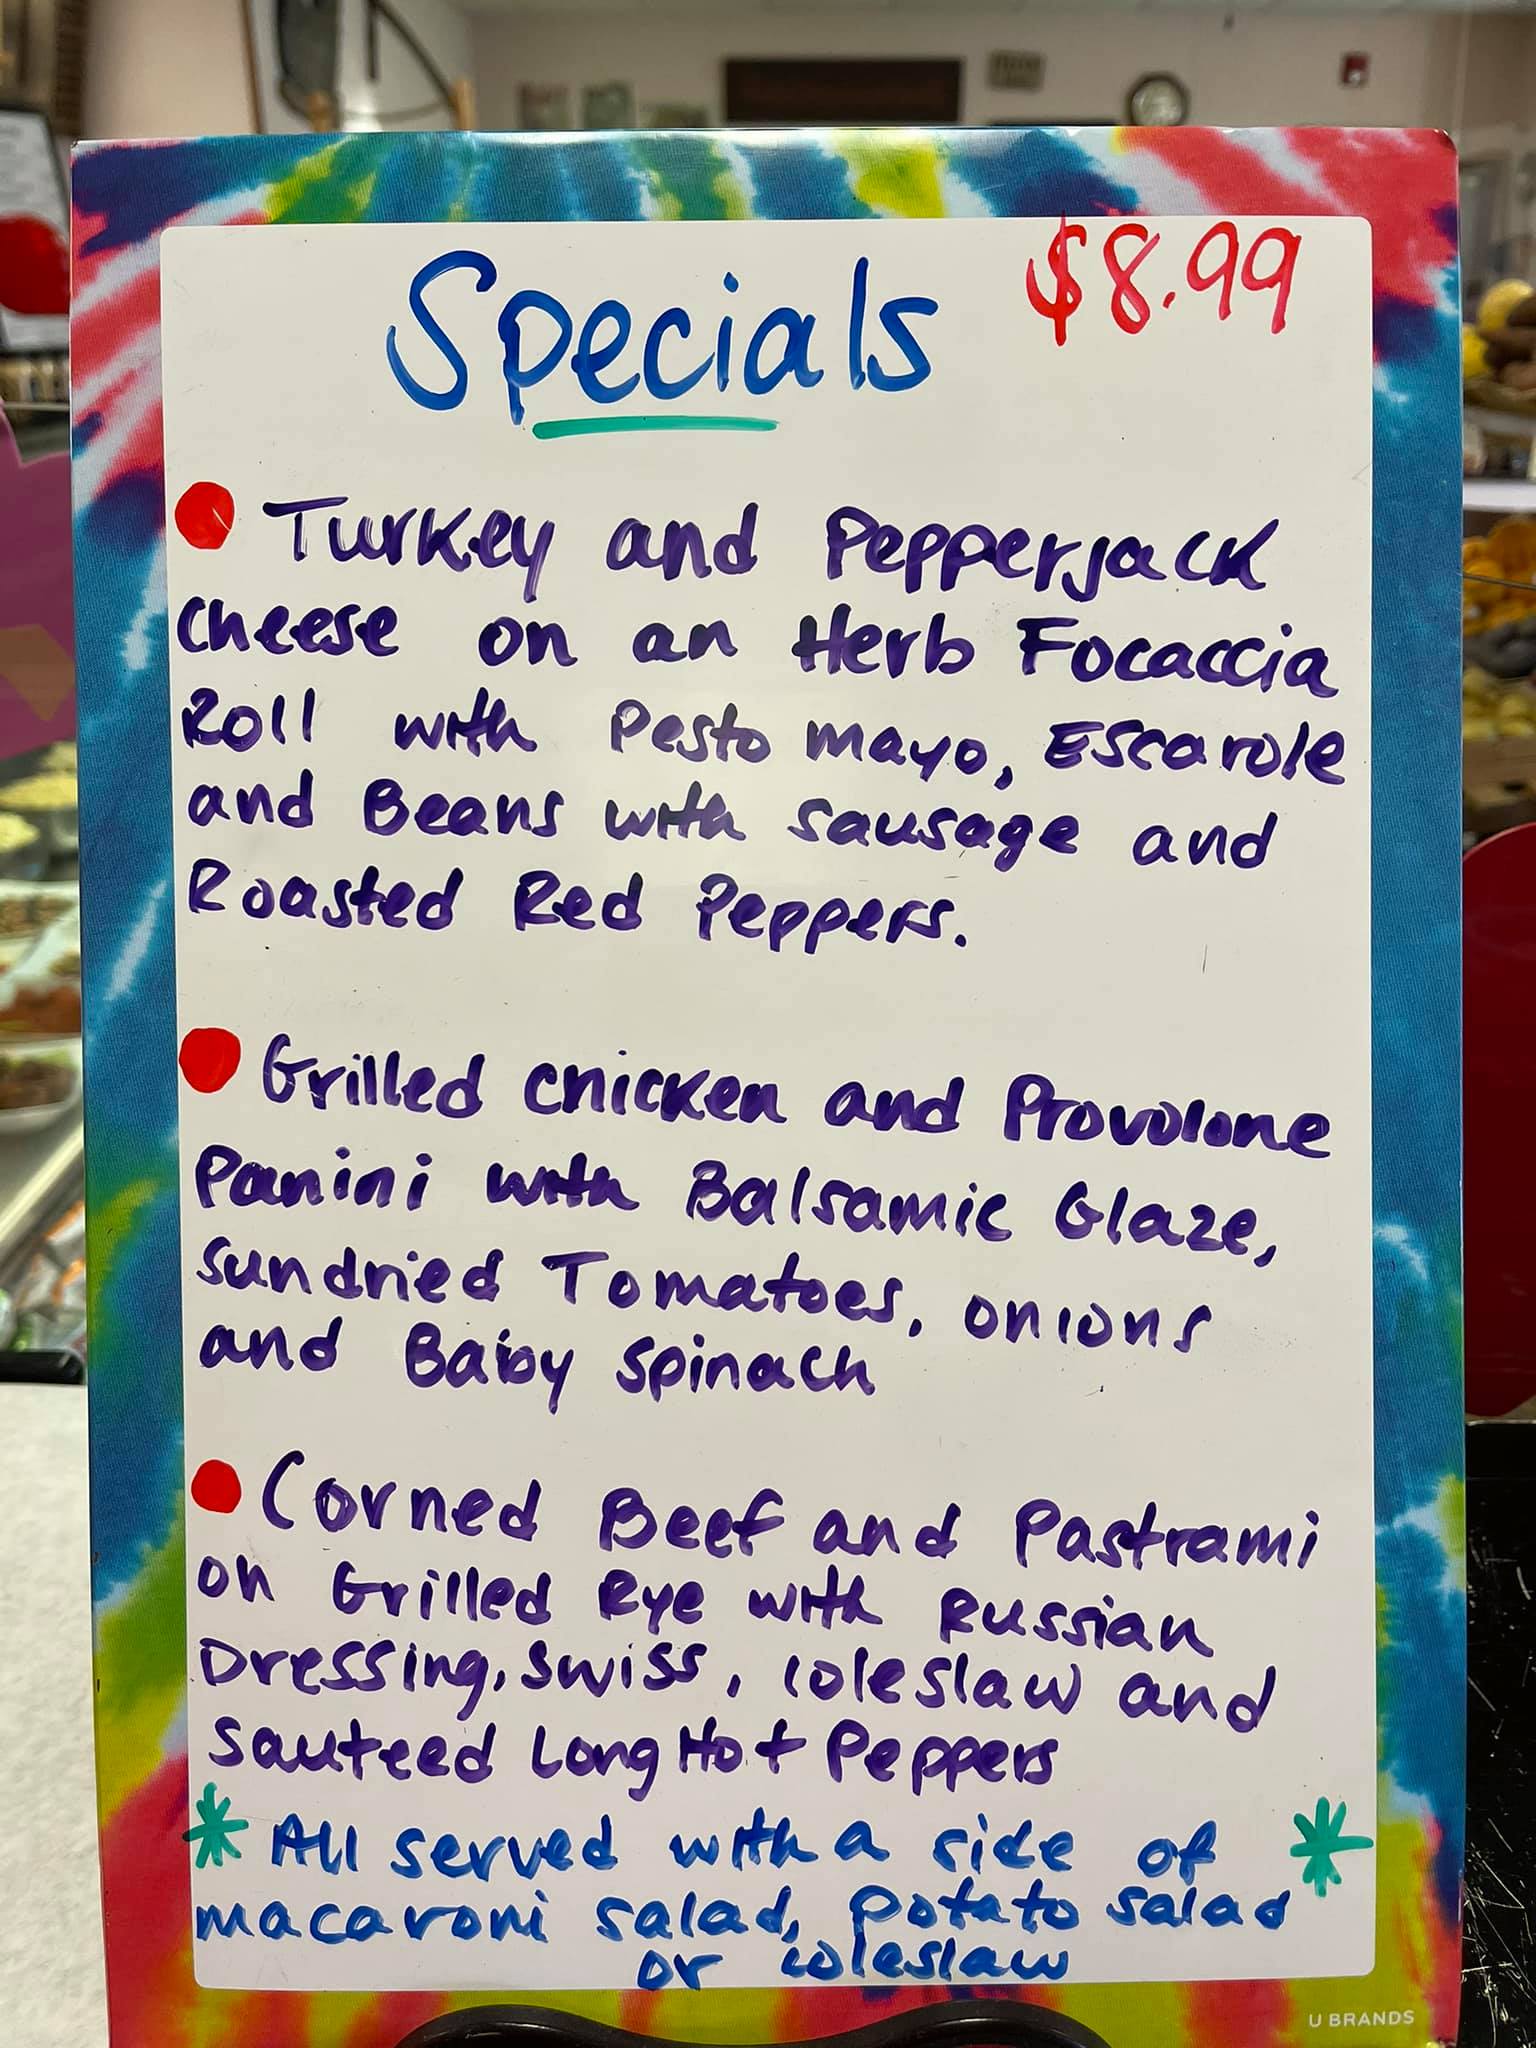 Specials $8.99
Turkey and Pepperjack
cheese on an Herb Focaccia
Roll with Pesto mayo, Escarole
and Beans with sausage and
Roasted Red Peppers.
Grilled chicken and Provolone
Panini with Balsamic Glaze,
sundried Tomatoes, onions
and Baby spinach
Corned Beef and Pastrami
on Grilled Rye with Russian
Dressing, swiss, coleslaw and
sauteed Long Hot Peppers
* All served with a side of *
macaroni salad, potato salad
or coleslaw
U BRANDS